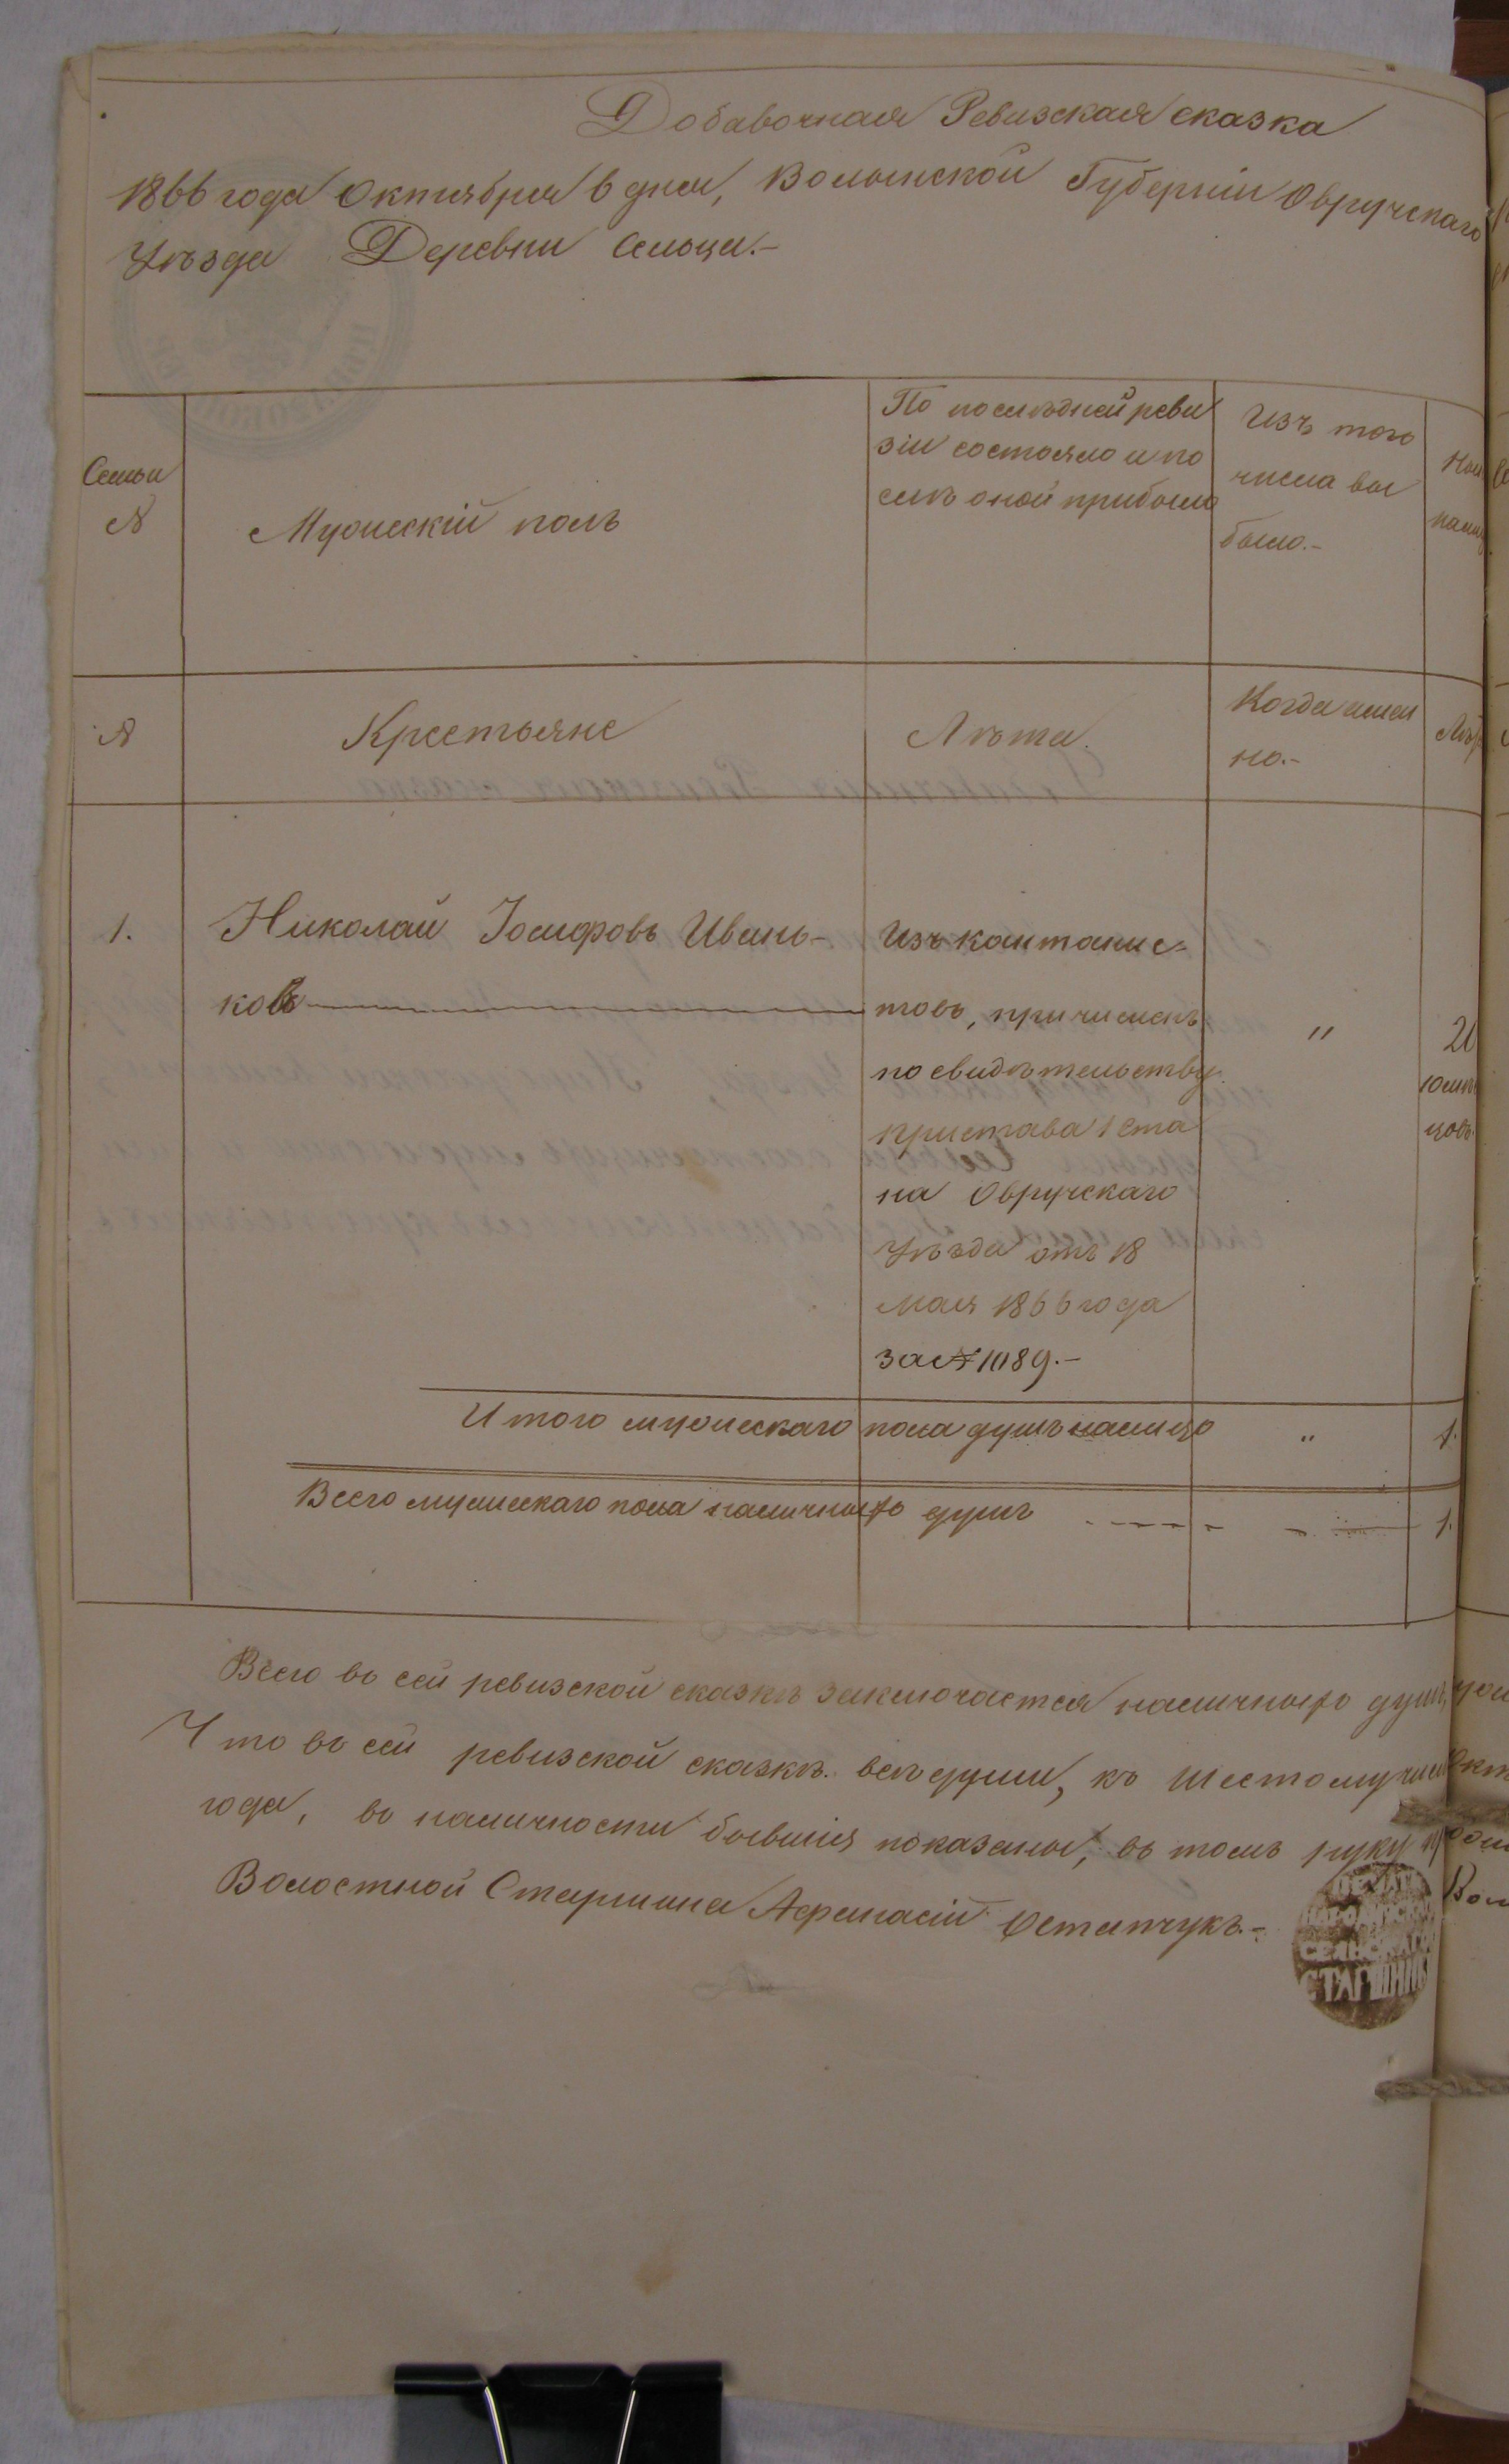 Добавочная Ревизская сказка
1866 года Октября 6 дня, Волынской Губерніи Овручскаго
Уѣзда Деревни Сельца.-
Семьи
№
Мужескій полъ
По послѣдней реви
зіи состояло и по
слѣ оной прибыло
Изъ того
числа вы
было.-
№
Крестьяне
Лѣта.
Когда имен
но.-
1.
Николай Іосифовъ Ивань-
ковъ
Изъ кантонис-
товъ, причисленъ
по свидѣтельству
пристава 1 Ста
на Овручскаго
Уѣзда отъ 18
Мая 1866 года
за № 1089.-
"
Итого мужескаго пола душъ налицо " 1.
Всего мужескаго пола наличныхъ душъ 1.
Всего въ сей ревизской сказкѣ заключается наличныхъ душъ
Что въ сей ревизской сказкѣ всѣ души, къ Шестому
года, въ наличности бывшія показаны, въ томъ руку
Волостной Старшина Афанасій Остапчукъ.-
СЕЛЬСКАГО
СТАРШИНЫ